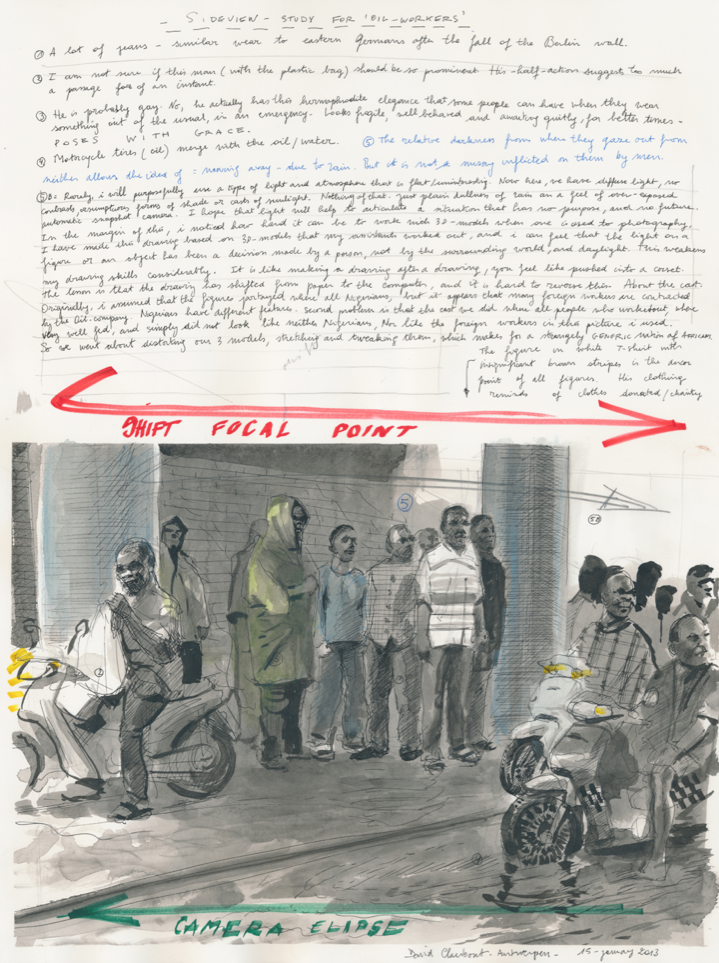 - SIDEVIEW - STUDY FOR 'OIL-WORKERS'
① A lot of jeans - similar wear to eastern Germans after the fall of the Berlin wall.
② I am not sure if this man (with the plastic bag) should be so prominent. His half-action suggests too much
a passage for of an instant.
③ He is probably gay. No, he actually has this hermaphrodite elegance that some people can have when they wear
something out of the usual, in an emergency. Looks fragile, well behaved and awaiting quietly, for better times -
POSES WITH GRACE.
④ Motorcycle tires (oil) merge with the oil/water. ⑤ The relative darkness from where they gaze out from
neither allows the idea of = moving away - due to rain. But it is not a misery inflicted on them by men.
⑤B= Rarely, i will purposefully use a type of light and atmosphere that is flat Now here, we have diffuse light, no
contrasts, assumptions, forms of shade or casts of sunlight. Nothing of that. Just plain dullness of rain an a feel of over-exposed
automatic snapshot camera. I hope that light will help to articulate a situation that has no purpose, and no future.
In the margin of this, i noticed how hard it can be to work with 3D-models when one is used to photography.
I have made this drawing based on 3D-models that my assistants worked out, and i can feel that the light on a
figure or an object has been a decision made by a person, not by the surrounding world, and daylight. This weakens
my drawing skills considerably. It is like making a drawing after a drawing, you feel like pushed into a corset.
The lemon is that the drawing has shifted from paper to the computer, and it is hard to reverse then. About the cast.
Originally, i assumed that the figures portrayed where all Nigerians, but it appears that many foreign workers are contracted
by the Oil-company. Nigerians have different features. second problem is that the cast we did show all people who workout, where
very well fed, and simply did not look like neither Nigerians, Nor like the foreign workers in the picture i used.
So we went about distorting our 3 models, stretching and tweaking them, which makes for a strangely GENERIC nation of AFRICANS
The figure in white T-shirt with
insignificant brown stripes is the anchor
point of all figures. His clothing
reminds of clothes donated/charity
SHIFT FOCAL POINT
⑤
⑤B
②
CAMERA ELIPSE
David Claerbout - Antwerpen - 15-january 2013